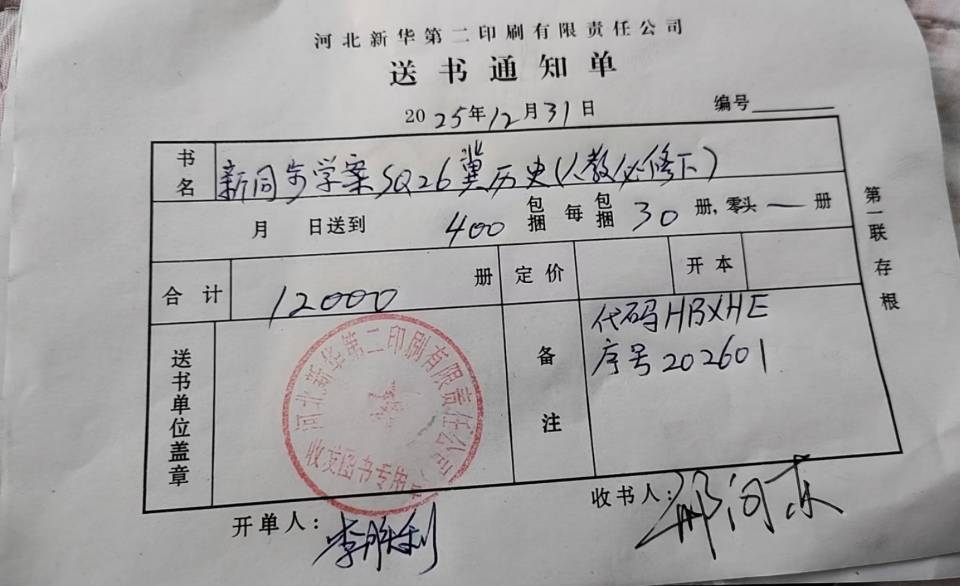 河北新华第二印刷有限责任公司
送书通知单
2025年12月31日 编号
书名 新同步学案SQ26冀历史(人教必修下)
月 日送到 400 包捆 每 包捆 30 册,零头 一 册
合计 12000 册 定价 开本
送书单位盖章 备注
代码HBXHE
序号202601
河北新华第二印刷有限责任公司
收发图书专用章
第一联存根
开单人:李胜利
收书人: